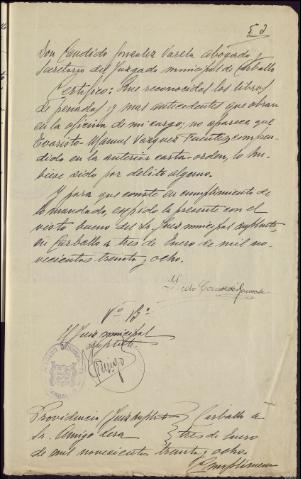 53
Don Candido Gonzalez Varela abogado
Secretario del Juzgado municipal de Carballo
Certifico: Que reconocidos los libros
de penados y mas antecedentes que obran
en la oficina de mi cargo, no aparece que
Evaristo Manuel Vazquez Fuentes, compren
dido en la anterior carta-orden, lo hu
biese sido por delito alguno.
Y para que conste en cumplimiento de
lo mandado, expido la presente con el
visto bueno del Sr. Juez municipal suplente
en Carballo a tres de Enero de mil no
vecientos treinta y ocho.
Vº Bº
El Juez municipal
suplente
Amigo
Providencia Juez suplente Carballo a
Sr. Amigo tres de Enero
de mil novecientos treinta y ocho.